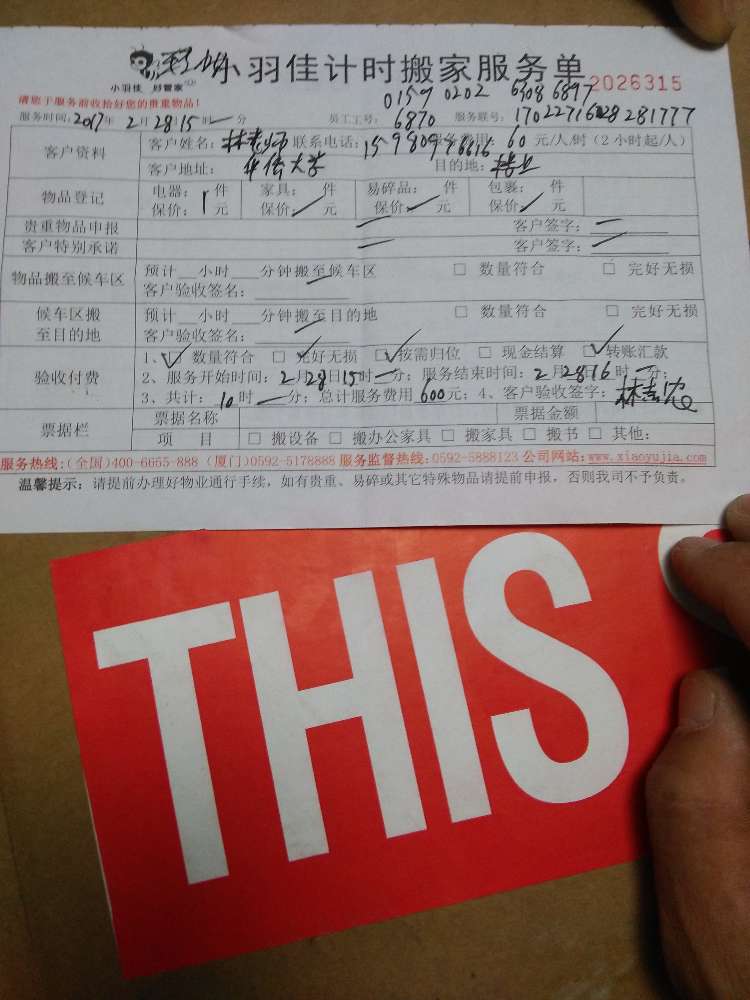 小羽佳计时搬家服务单
小羽佳 好管家
2026315
请您于服务前收拾好您的贵重物品!
0159 0202 6308 6897
服务时间: 2017年 2月 28 15时 一 分 员工工号: 6870 服务联号: 17022716028281777
客户资料
客户姓名: 林老师 联系电话: 服务费用: 60 元/人/时(2小时起/人)
客户地址: 华侨大学 目的地:
物品登记
电器: 件 家具: 件 易碎品: 件 包裹: 件
保价: 元 保价: 元 保价: 元 保价: 元
贵重物品申报 客户签字:
客户特别承诺 客户签字:
物品搬至候车区
预计__小时__分钟搬至候车区 □ 数量符合 □ 完好无损
客户验收签名:
候车区搬至目的地
预计__小时__分钟搬至目的地 □ 数量符合 □ 完好无损
客户验收签名:
验收付费
1、☑ 数量符合 ☑ 完好无损 ☑ 按需归位 □ 现金结算 ☑ 转账汇款
2、服务开始时间: 2月28日15时一分; 服务结束时间: 2月28 16时一分;
3、共计: 10时一分; 总计服务费用 600元; 4、客户验收签字:
票据栏
票据名称 票据金额
项 目 □ 搬设备 □ 搬办公家具 □ 搬家具 □ 搬书 □ 其他:
服务热线:(全国)400-6655-888 (厦门)0592-5178888 服务监督热线:0592-5888123 公司网站:www.xiaoyujia.com
温馨提示: 请提前办理好物业通行手续, 如有贵重、易碎或其它特殊物品请提前申报, 否则我司不予负责。
THIS